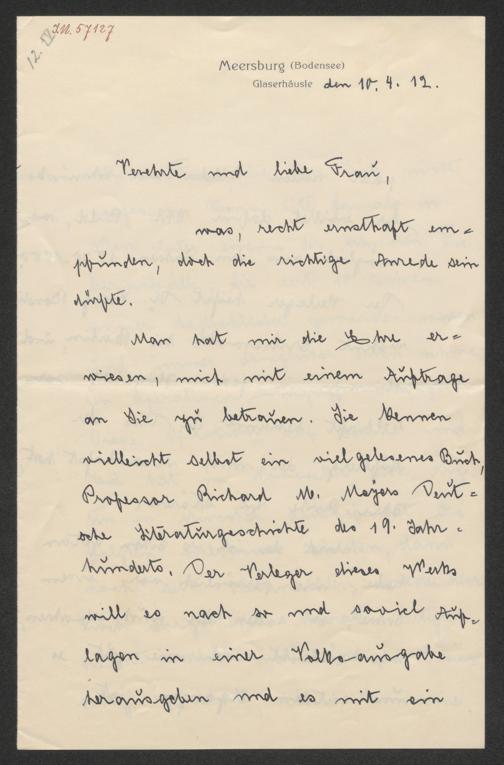 I.N. 57127
12. IV
Meersburg (Bodensee)
Glaserhäusle den 10. 4. 12.
Verehrte und liebe Frau,
was, recht ernsthaft em=
pfunden, doch die richtige Anrede sein
dürfte.
Man hat mir die Ehre er=
wiesen, mich mit einem Auftrage
an Sie zu betrauen. Sie kennen
vielleicht selbst ein vielgelesenes Buch,
Professor Richard M. Meyers Deut-
sche Literaturgeschichte des 19. Jahr-
hunderts. Der Verleger dieses Werks
will es nach so und soviel Auf-
lagen in einer Volks-ausgabe
herausgeben und es mit ein